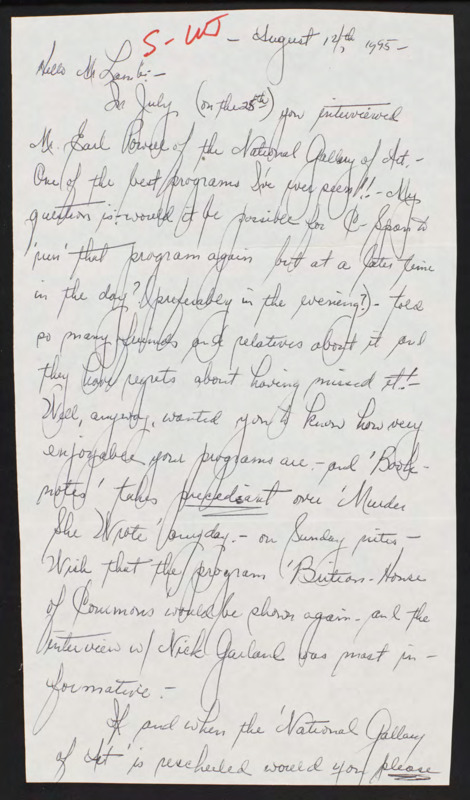 S-W - August 12/th, 1995 -
Hello Mr Lamb: -
In July (on the 25th) you interviewed
Mr. Earl Powell of the National Gallery of Art. -
One of the best programs I've ever seen!! - My
question is - would it be possible for C-Span to
'run' that program again but at a later time
in the day? (preferably in the evening?) - told
so many friends and relatives about it and
they have regrets about having missed it! -
Well, anyway, wanted you to know how very
enjoyable your programs are. - and 'Book-
notes' takes precediant over 'Murder
She Wrote' anyday. - on Sunday nites -
Wish that the program 'Britian-House
of Commons would be shown again - and the
interview w/ Nick Garland was most in-
formative. -
If and when the 'National Gallary
of Art' is rescheduled would you please